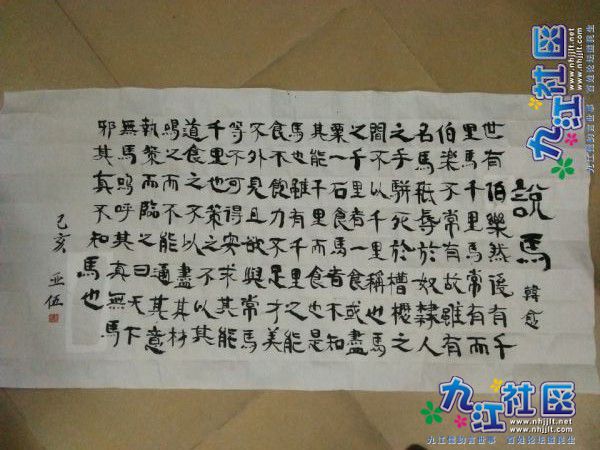 說馬 韓愈
世有伯樂然後有千
里馬千里馬常有而
伯樂不常有故雖有
名馬祇辱於奴隸人
之手駢死於槽櫪之
間不以千里稱也馬
之千里者一食或盡
粟一石食馬者不知
其能千里而食也是
馬也雖有千里之能
食不飽力不足才美
不外見且欲與常馬
等不可得安求其能
千里也策之不以其
道食之不能盡其材
鳴之而不能通其意
執策而臨之曰天下
無馬嗚呼其真無馬
邪其真不知
馬也
己亥 亚伍
九江社区
www.nhjjlt.net
www.nhjjlt.com
九江社区
www.nhjjlt.net
www.nhjjlt.com